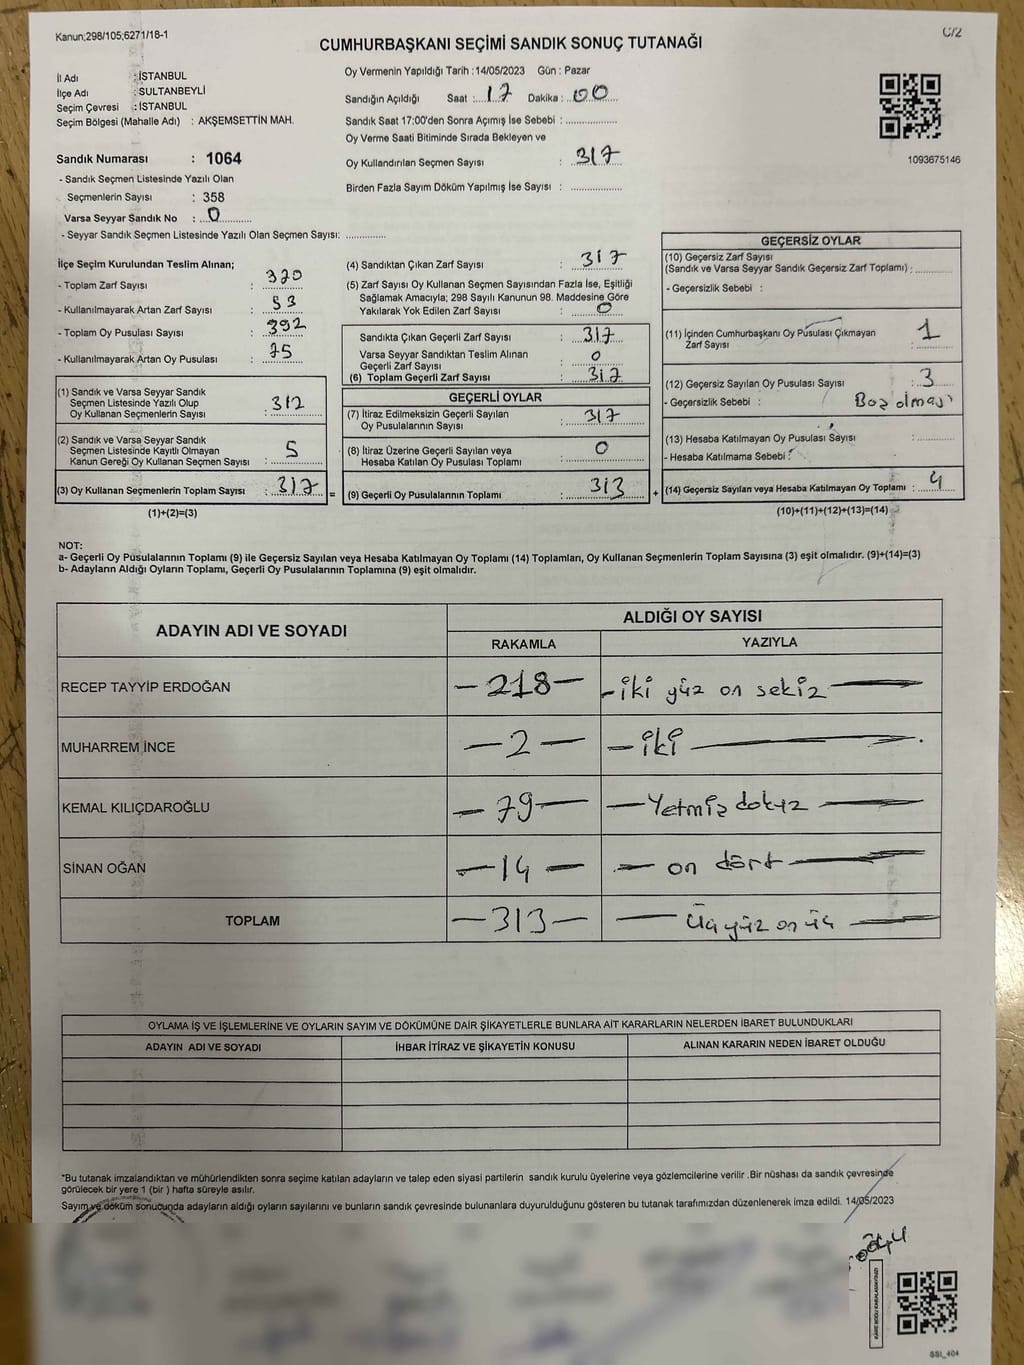 Kanun;298/105;6271/18-1
C/2
CUMHURBAŞKANI SEÇİMİ SANDIK SONUÇ TUTANAĞI
İl Adı : İSTANBUL
İlçe Adı : SULTANBEYLİ
Seçim Çevresi : İSTANBUL
Seçim Bölgesi (Mahalle Adı) : AKŞEMSETTİN MAH.
Sandık Numarası : 1064
- Sandık Seçmen Listesinde Yazılı Olan
Seçmenlerin Sayısı : 358
Varsa Seyyar Sandık No : 0
- Seyyar Sandık Seçmen Listesinde Yazılı Olan Seçmen Sayısı: ..............
Oy Vermenin Yapıldığı Tarih :14/05/2023 Gün : Pazar
Sandığın Açıldığı Saat : 17 Dakika : 00
Sandık Saat 17:00'den Sonra Açımış İse Sebebi : ................
Oy Verme Saati Bitiminde Sırada Bekleyen ve
Oy Kullandırılan Seçmen Sayısı : 317
Birden Fazla Sayım Döküm Yapılmış İse Sayısı : ................
1093675146
İlçe Seçim Kurulundan Teslim Alınan;
- Toplam Zarf Sayısı : 370
- Kullanılmayarak Artan Zarf Sayısı : 53
- Toplam Oy Pusulası Sayısı : 392
- Kullanılmayarak Artan Oy Pusulası : 75
(1) Sandık ve Varsa Seyyar Sandık
Seçmen Listesinde Yazılı Olup
Oy Kullanan Seçmenlerin Sayısı : 312
(2) Sandık ve Varsa Seyyar Sandık
Seçmen Listesinde Kayıtlı Olmayan
Kanun Gereği Oy Kullanan Seçmen Sayısı : 5
(3) Oy Kullanan Seçmenlerin Toplam Sayısı : 317 =
(1)+(2)=(3)
(4) Sandıktan Çıkan Zarf Sayısı : 317
(5) Zarf Sayısı Oy Kullanan Seçmen Sayısından Fazla İse, Eşitliği
Sağlamak Amacıyla; 298 Sayılı Kanunun 98. Maddesine Göre
Yakılarak Yok Edilen Zarf Sayısı : 0
Sandıkta Çıkan Geçerli Zarf Sayısı : 317
Varsa Seyyar Sandıktan Teslim Alınan
Geçerli Zarf Sayısı : 0
(6) Toplam Geçerli Zarf Sayısı : 317
GEÇERLİ OYLAR
(7) İtiraz Edilmeksizin Geçerli Sayılan
Oy Pusulalarının Sayısı : 317
(8) İtiraz Üzerine Geçerli Sayılan veya
Hesaba Katılan Oy Pusulası Toplamı : 0
(9) Geçerli Oy Pusulalarının Toplamı : 313 +
GEÇERSİZ OYLAR
(10) Geçersiz Zarf Sayısı
(Sandık ve Varsa Seyyar Sandık Geçersiz Zarf Toplamı) : .............
- Geçersizlik Sebebi :
(11) İçinden Cumhurbaşkanı Oy Pusulası Çıkmayan
Zarf Sayısı : 1
(12) Geçersiz Sayılan Oy Pusulası Sayısı : 3
- Geçersizlik Sebebi : Boş olmayı
(13) Hesaba Katılmayan Oy Pusulası Sayısı : .............
- Hesaba Katılmama Sebebi :
(14) Geçersiz Sayılan veya Hesaba Katılmayan Oy Toplamı : 4
(10)+(11)+(12)+(13)=(14)
NOT:
a- Geçerli Oy Pusulalarının Toplamı (9) ile Geçersiz Sayılan veya Hesaba Katılmayan Oy Toplamı (14) Toplamları, Oy Kullanan Seçmenlerin Toplam Sayısına (3) eşit olmalıdır. (9)+(14)=(3)
b- Adayların Aldığı Oyların Toplamı, Geçerli Oy Pusulalarının Toplamına (9) eşit olmalıdır.
ADAYIN ADI VE SOYADI
ALDIĞI OY SAYISI
RAKAMLA YAZIYLA
RECEP TAYYİP ERDOĞAN - 218 - - iki yüz on sekiz -
MUHARREM İNCE - 2 - - iki -
KEMAL KILIÇDAROĞLU - 79 - - Yetmiş dokuz -
SİNAN OĞAN - 14 - - on dört -
TOPLAM - 313 - - Üç yüz on üç -
OYLAMA İŞ VE İŞLEMLERİNE VE OYLARIN SAYIM VE DÖKÜMÜNE DAİR ŞİKAYETLERLE BUNLARA AİT KARARLARIN NELERDEN İBARET BULUNDUKLARI
ADAYIN ADI VE SOYADI İHBAR İTİRAZ VE ŞİKAYETİN KONUSU ALINAN KARARIN NEDEN İBARET OLDUĞU
*Bu tutanak imzalandıktan ve mühürlendikten sonra seçime katılan adayların ve talep eden siyasi partilerin sandık kurulu üyelerine veya gözlemcilerine verilir .Bir nüshası da sandık çevresinde
görülecek bir yere 1 (bir ) hafta süreyle asılır.
Sayım ve döküm sonucunda adayların aldığı oyların sayılarını ve bunların sandık çevresinde bulunanlara duyurulduğunu gösteren bu tutanak tarafımızdan düzenlenerek imza edildi. 14/05/2023
SSI_404